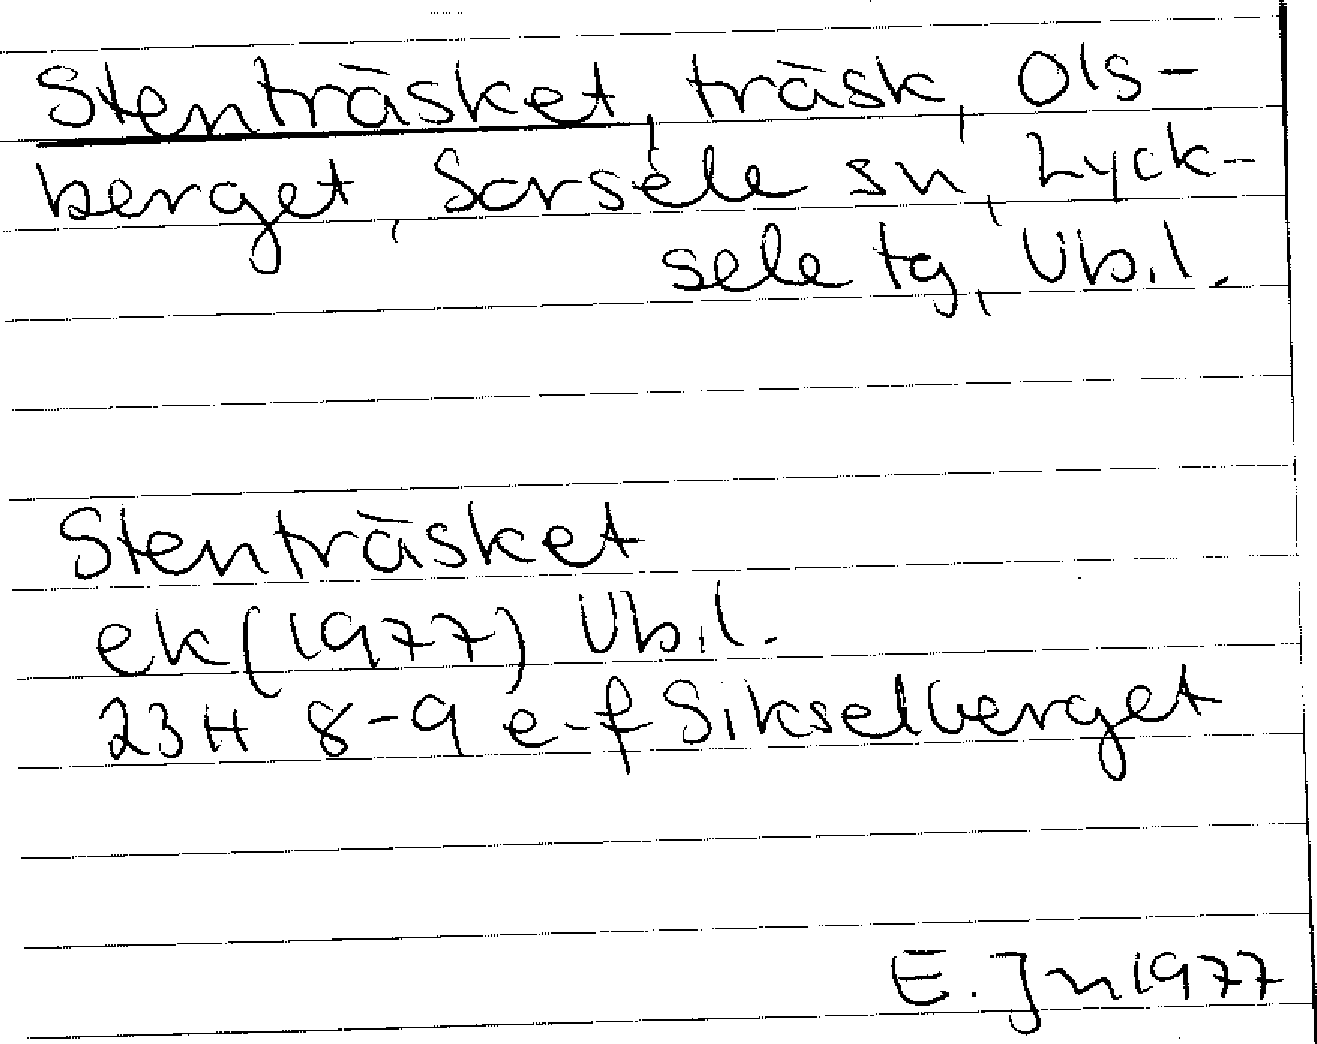 Stenträsket, träsk, Ols-
berget, Sorsele sn, Lyck-
sele tg, Vb.l.
Stenträsket
ek (1977) Vb.l.
23H 8-9 e-f Sikselberget
E. Jn 1977